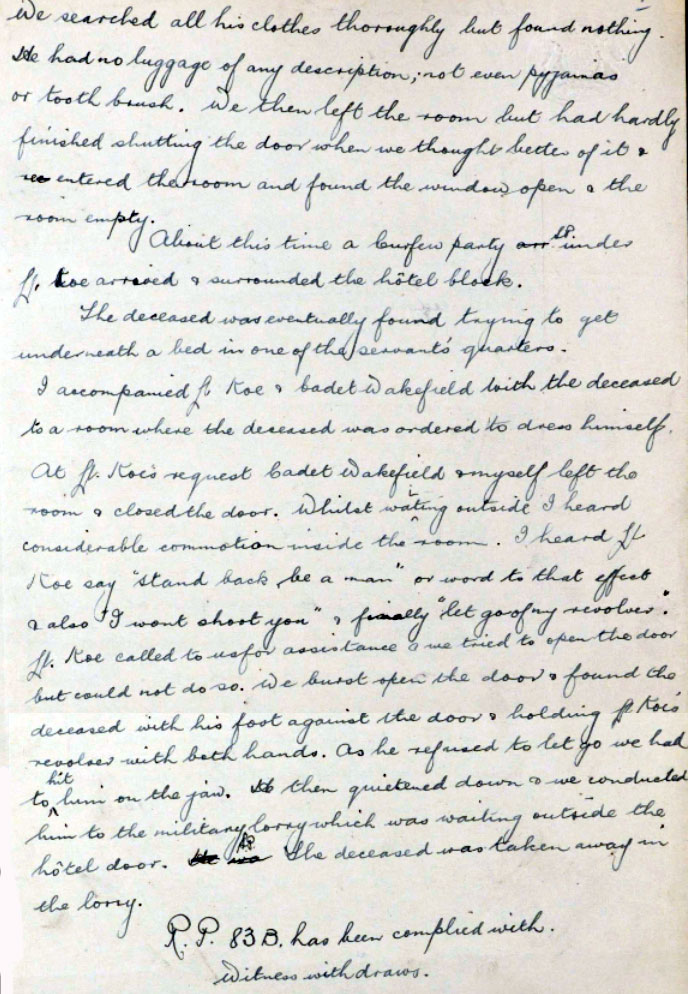 We searched all his clothes thoroughly but found nothing.
He had no luggage of any description; not even pyjamas
or tooth brush. We then left the room but had hardly
finished shutting the door when we thought better of it &
re entered the room and found the window open & the
room empty.
About this time a Curfew party arr. under
Lt. Koe arrived & surrounded the hôtel block.
The deceased was eventually found trying to get
underneath a bed in one of the servant's quarters.
I accompanied Lt Koe & Cadet Wakefield with the deceased
to a room where the deceased was ordered to dress himself.
At Lt. Koe's request Cadet Wakefield & myself left the
room & closed the door. Whilst waiting outside I heard
considerable commotion inside the room. I heard Lt
Koe say "stand back, be a man" or word to that effect
& also "I wont shoot you" & finally "let go of my revolver".
Lt. Koe called to us for assistance & we tried to open the door
but could not do so. We burst open the door & found the
deceased with his foot against the door & holding Lt Koe's
revolver with both hands. As he refused to let go we had
to hit him on the jaw. He then quietened down & we conducted
him to the military lorry which was waiting outside the
hôtel door. He was The deceased was taken away in
the lorry.
R.P. 83B. has been complied with.
Witness withdraws.